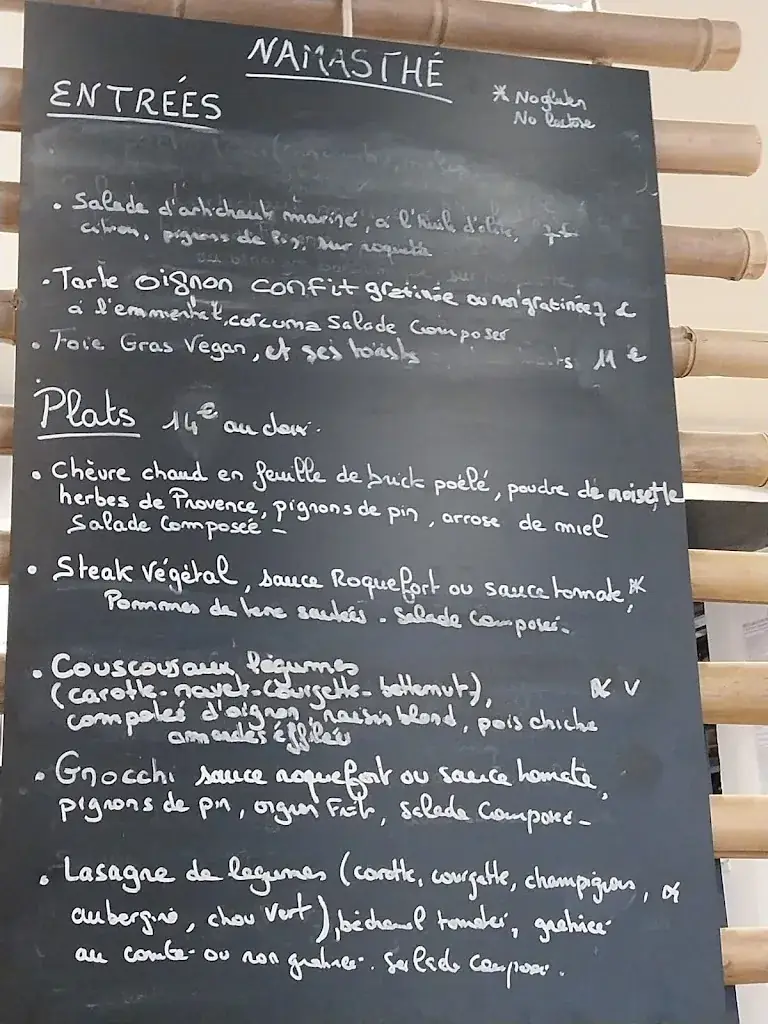 NAMASTHÉ
ENTRÉES
* No gluten
No lactose
• Salade d'artichaut mariné, à l'huile d'olive, 7 €
citron, pignons de Pin, sur roquette
• Tarte oignon confit gratinée ou non gratinée 7 €
à l'emmental, curcuma Salade Composer
• Foie Gras Vegan, et ses toasts 11 €
Plats 14€ au choix.
• Chèvre chaud en feuille de brick poêlé, poudre de noisette
herbes de Provence, pignons de pin, arrose de miel
Salade Composée -
• Steak Végétal, sauce Roquefort ou sauce tomate, *
Pommes de terre sautées - Salade Composée -
• Couscous aux légumes
(carotte - navet - Courgette - butternut), * V
compotés d'oignon, raisin blond, pois chiche
amandes éffilées
• Gnocchi sauce roquefort ou sauce tomate,
pignons de pin, oignon Frit, Salade Composée -
• Lasagne de legumes (carotte, courgette, champignons, *
aubergine, chou vert), béchamel tomates, gratinée
au comté ou non gratinée. Salade Composer.